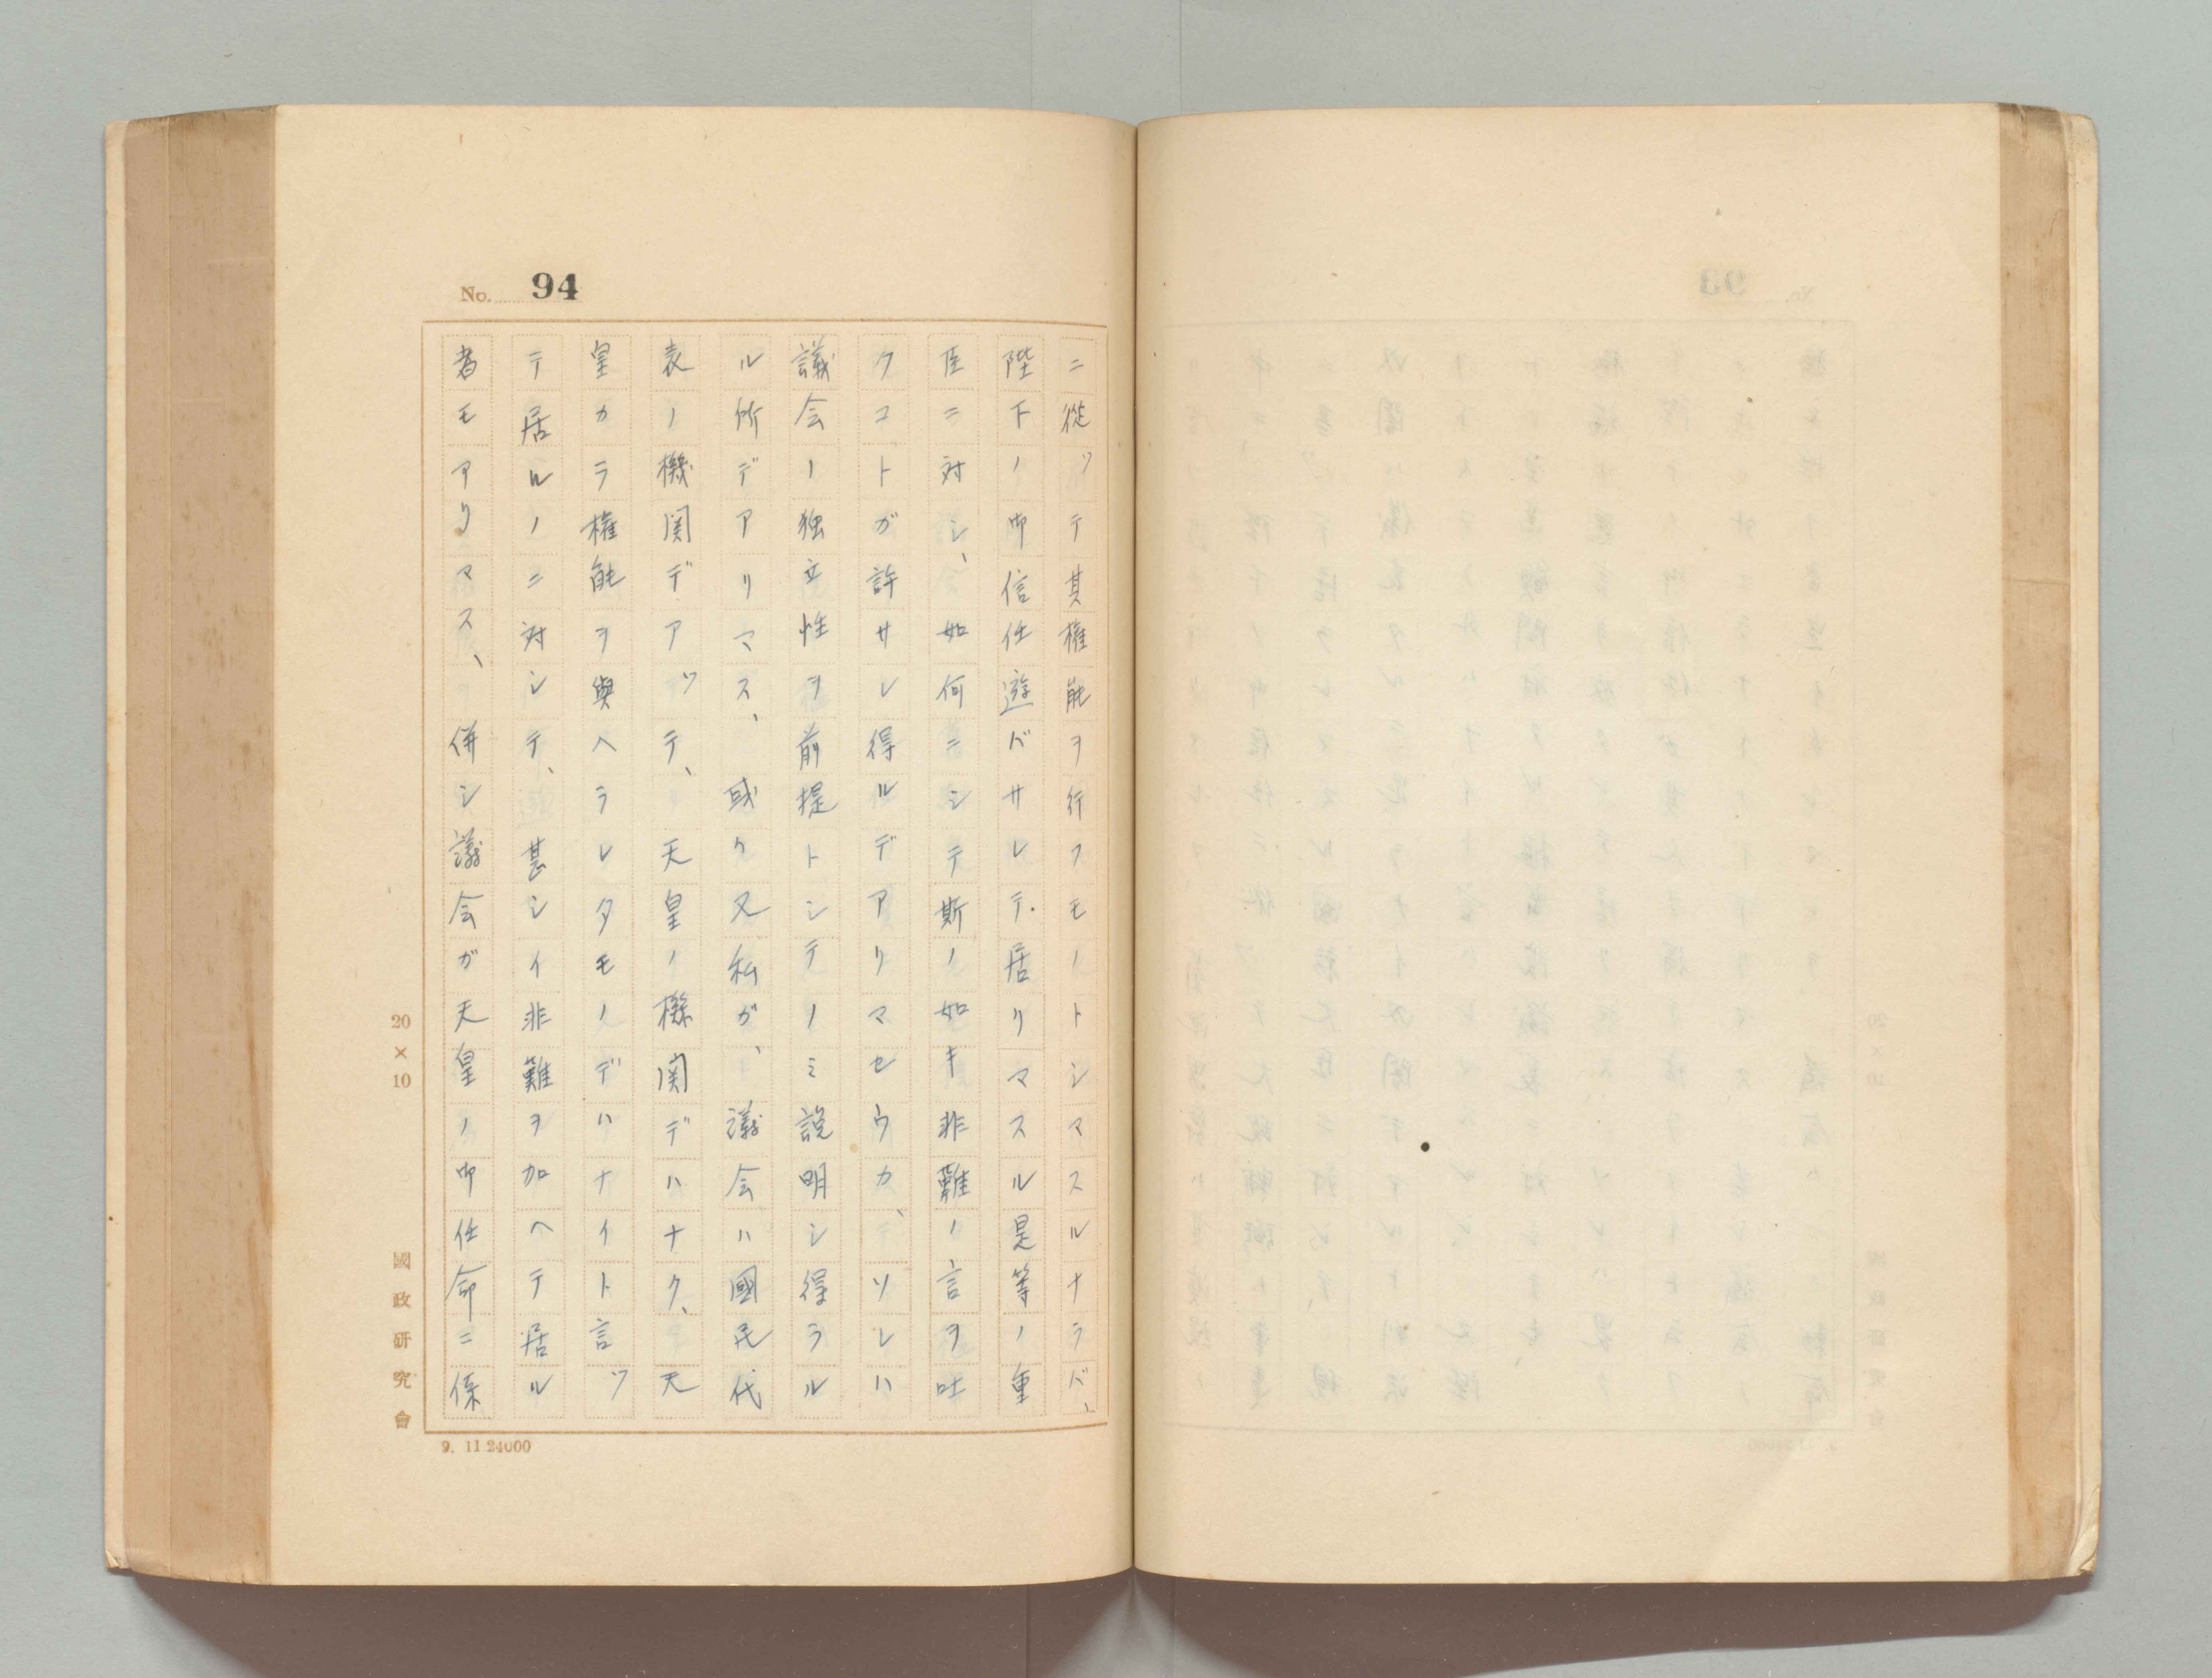 No. 94
ニ從ッテ其権能ヲ行フモノトシマスルナラバ、
陛下ノ御信任遊バサレテ居リマスル是等ノ重
臣ニ対シ、如何ニシテ斯ノ如キ非難ノ言ヲ吐
クコトガ許サレ得ルデアリマセウカ、ソレハ
議会ノ独立性ヲ前提トシテノミ説明シ得ラル
ル所デアリマス、或ク又私ガ、議会ハ國民代
表ノ機関デアッテ、天皇ノ機関デハナク、天
皇カラ権能ヲ與ヘラレタモノデハナイト言ッ
テ居ルノニ対シテ、甚シイ非難ヲ加ヘテ居ル
者モアリマス、併シ議会ガ天皇ノ御任命ニ係
20×10
國政研究會
9. 11 24000